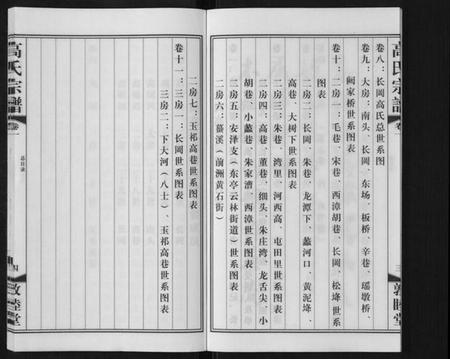 高氏宗譜
卷一
卷八：长岡高氏总世系图
卷九：大房：南头、长岡、东场、板桥、辛巷、瑶墩桥、
阙家桥世系图表
卷十：二房一：毛巷、宋巷、西漳胡巷、长岡、松埄世系
图表
二房二：长岡、朱巷、龙潭下、蠡河口、黄泥埄、
高巷、大树下世系图表
二房三：朱巷、湾里、河西高、屯田里世系图表
二房四：高巷、董巷、细头、朱庄湾、龙舌尖、小
胡巷、小蠡巷、朱家漕、西漳世系图表
二房五：安泽支（东亭云林街道）世系图表
二房六：蓉溪（前洲黄石街）
三
敦睦堂
高氏宗譜
卷一
总目录
二房七：玉祁高巷世系图表
卷十一：三房一：长岡世系图表
三房二：下大河（八士）、玉祁高巷世系图表
四
敦睦堂